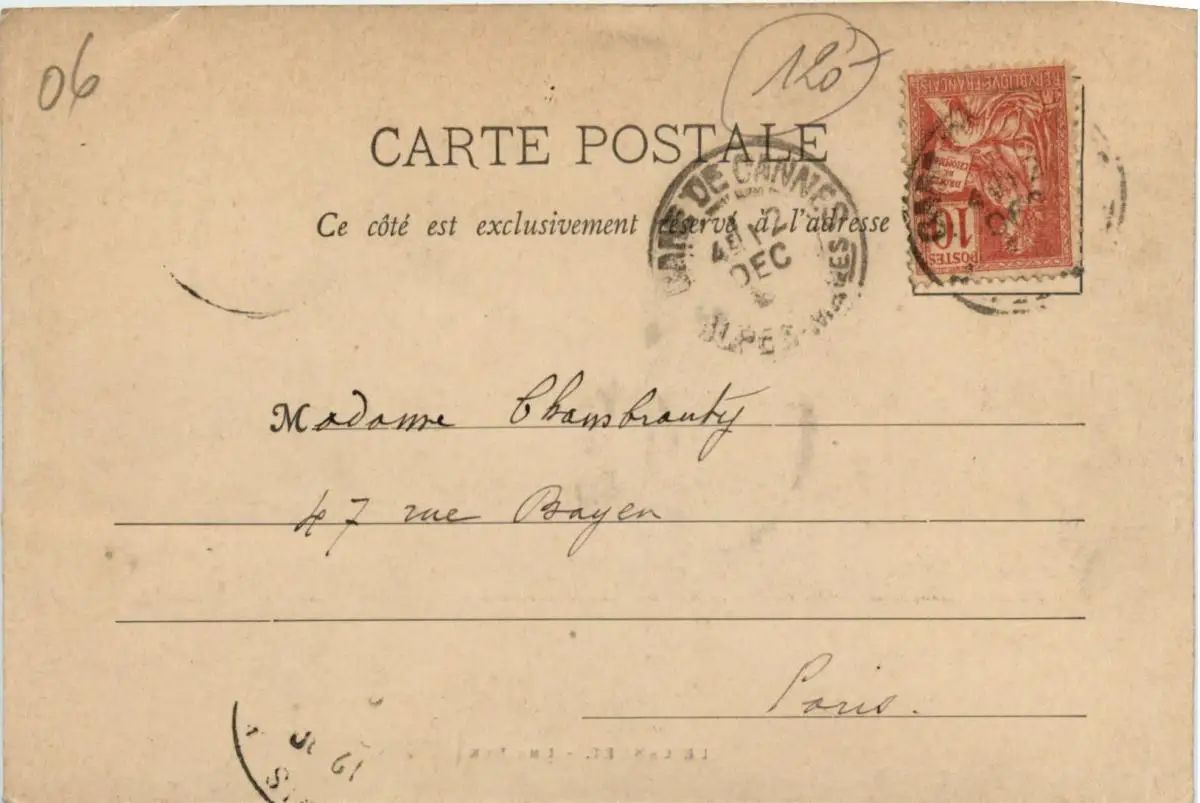 06
120
CARTE POSTALE
Ce côté est exclusivement réservé à l'adresse
GARE DE CANNES
12
DEC
ALPES-MARMES
REPUBLIQUE FRANÇAISE
DROITS
DE
L'HOMME
10
POSTES
Madame Chambrauty
47 rue Bayen
Paris.